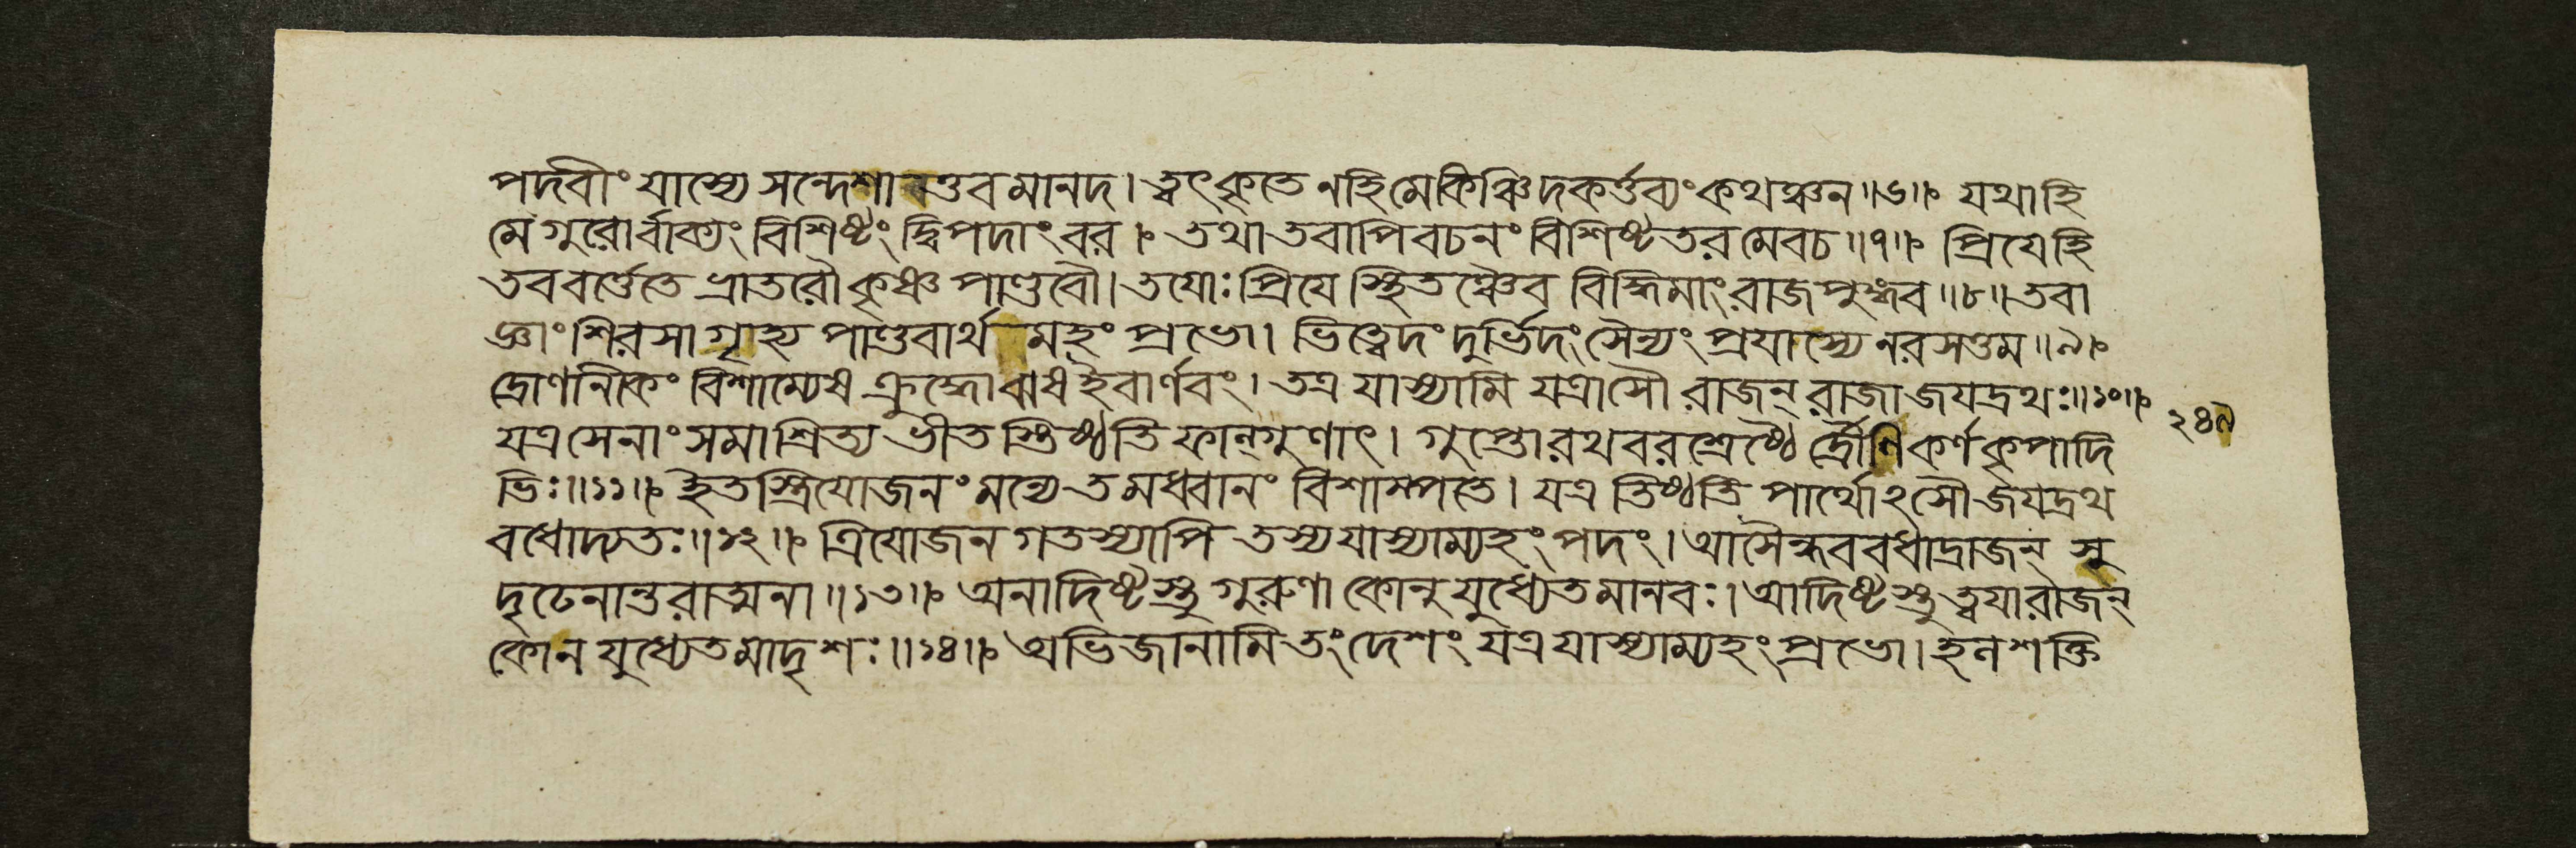 পদবীং যাস্যে সন্দেশাত্তব মানদ। ত্বৎকৃতে নহি মে কিঞ্চিদকর্ত্তব্যং কথঞ্চন॥৬॥ যথা হি
মে গুরোর্বাক্যং বিশিষ্টং দ্বিপদাং বর। তথা তবাপি বচনং বিশিষ্টতরমেব চ॥৭॥ প্রিযে হি
তব বর্ত্তেতে ভ্রাতরৌ কৃষ্ণপাণ্ডবৌ। তযোঃ প্রিযে স্থিতঞ্চৈব বিদ্ধি মাং রাজপুঙ্গব॥৮॥ তবা
জ্ঞাং শিরসা গৃহ্য পাণ্ডবার্থমহং প্রভো। ভিত্ত্বেদং দুর্ভিদং সৈন্যং প্রযাস্যে নরসত্তম॥৯॥
দ্রোণানিকং বিশাম্যেষ ক্রুদ্ধো ঝষ ইবার্ণবং। তত্র যাস্যামি যত্রাসৌ রাজন্ রাজা জযদ্রথঃ॥১০॥
২৪৭
যত্র সেনাং সমাশ্রিত্য ভীতস্তিষ্ঠতি ফাল্গুণাৎ। গুপ্তো রথবরশ্রেষ্ঠৈ র্দ্রৌণিকর্ণকৃপাদি
ভিঃ॥১১॥ ইতস্ত্রিযোজনং মন্যে তমধ্বানং বিশাম্পতে। যত্র তিষ্ঠতি পার্থোঽসৌ জযদ্রথ
বধোদ্যতঃ॥১২॥ ত্রিযোজনগতস্যাপি তস্য যাস্যাম্যহং পদং। আসৈন্ধববধাদ্রাজন্ সু
দৃঢেনান্তরাত্মনা॥১৩॥ অনাদিষ্টস্তু গুরুণা কোনু যুধ্যেত মানবঃ। আদিষ্টস্তু ত্বযা রাজন্
কোন যুধ্যেত মাদৃশঃ॥১৪॥ অভিজানামি তং দেশং যত্র যাস্যাম্যহং প্রভো। হনশক্তি